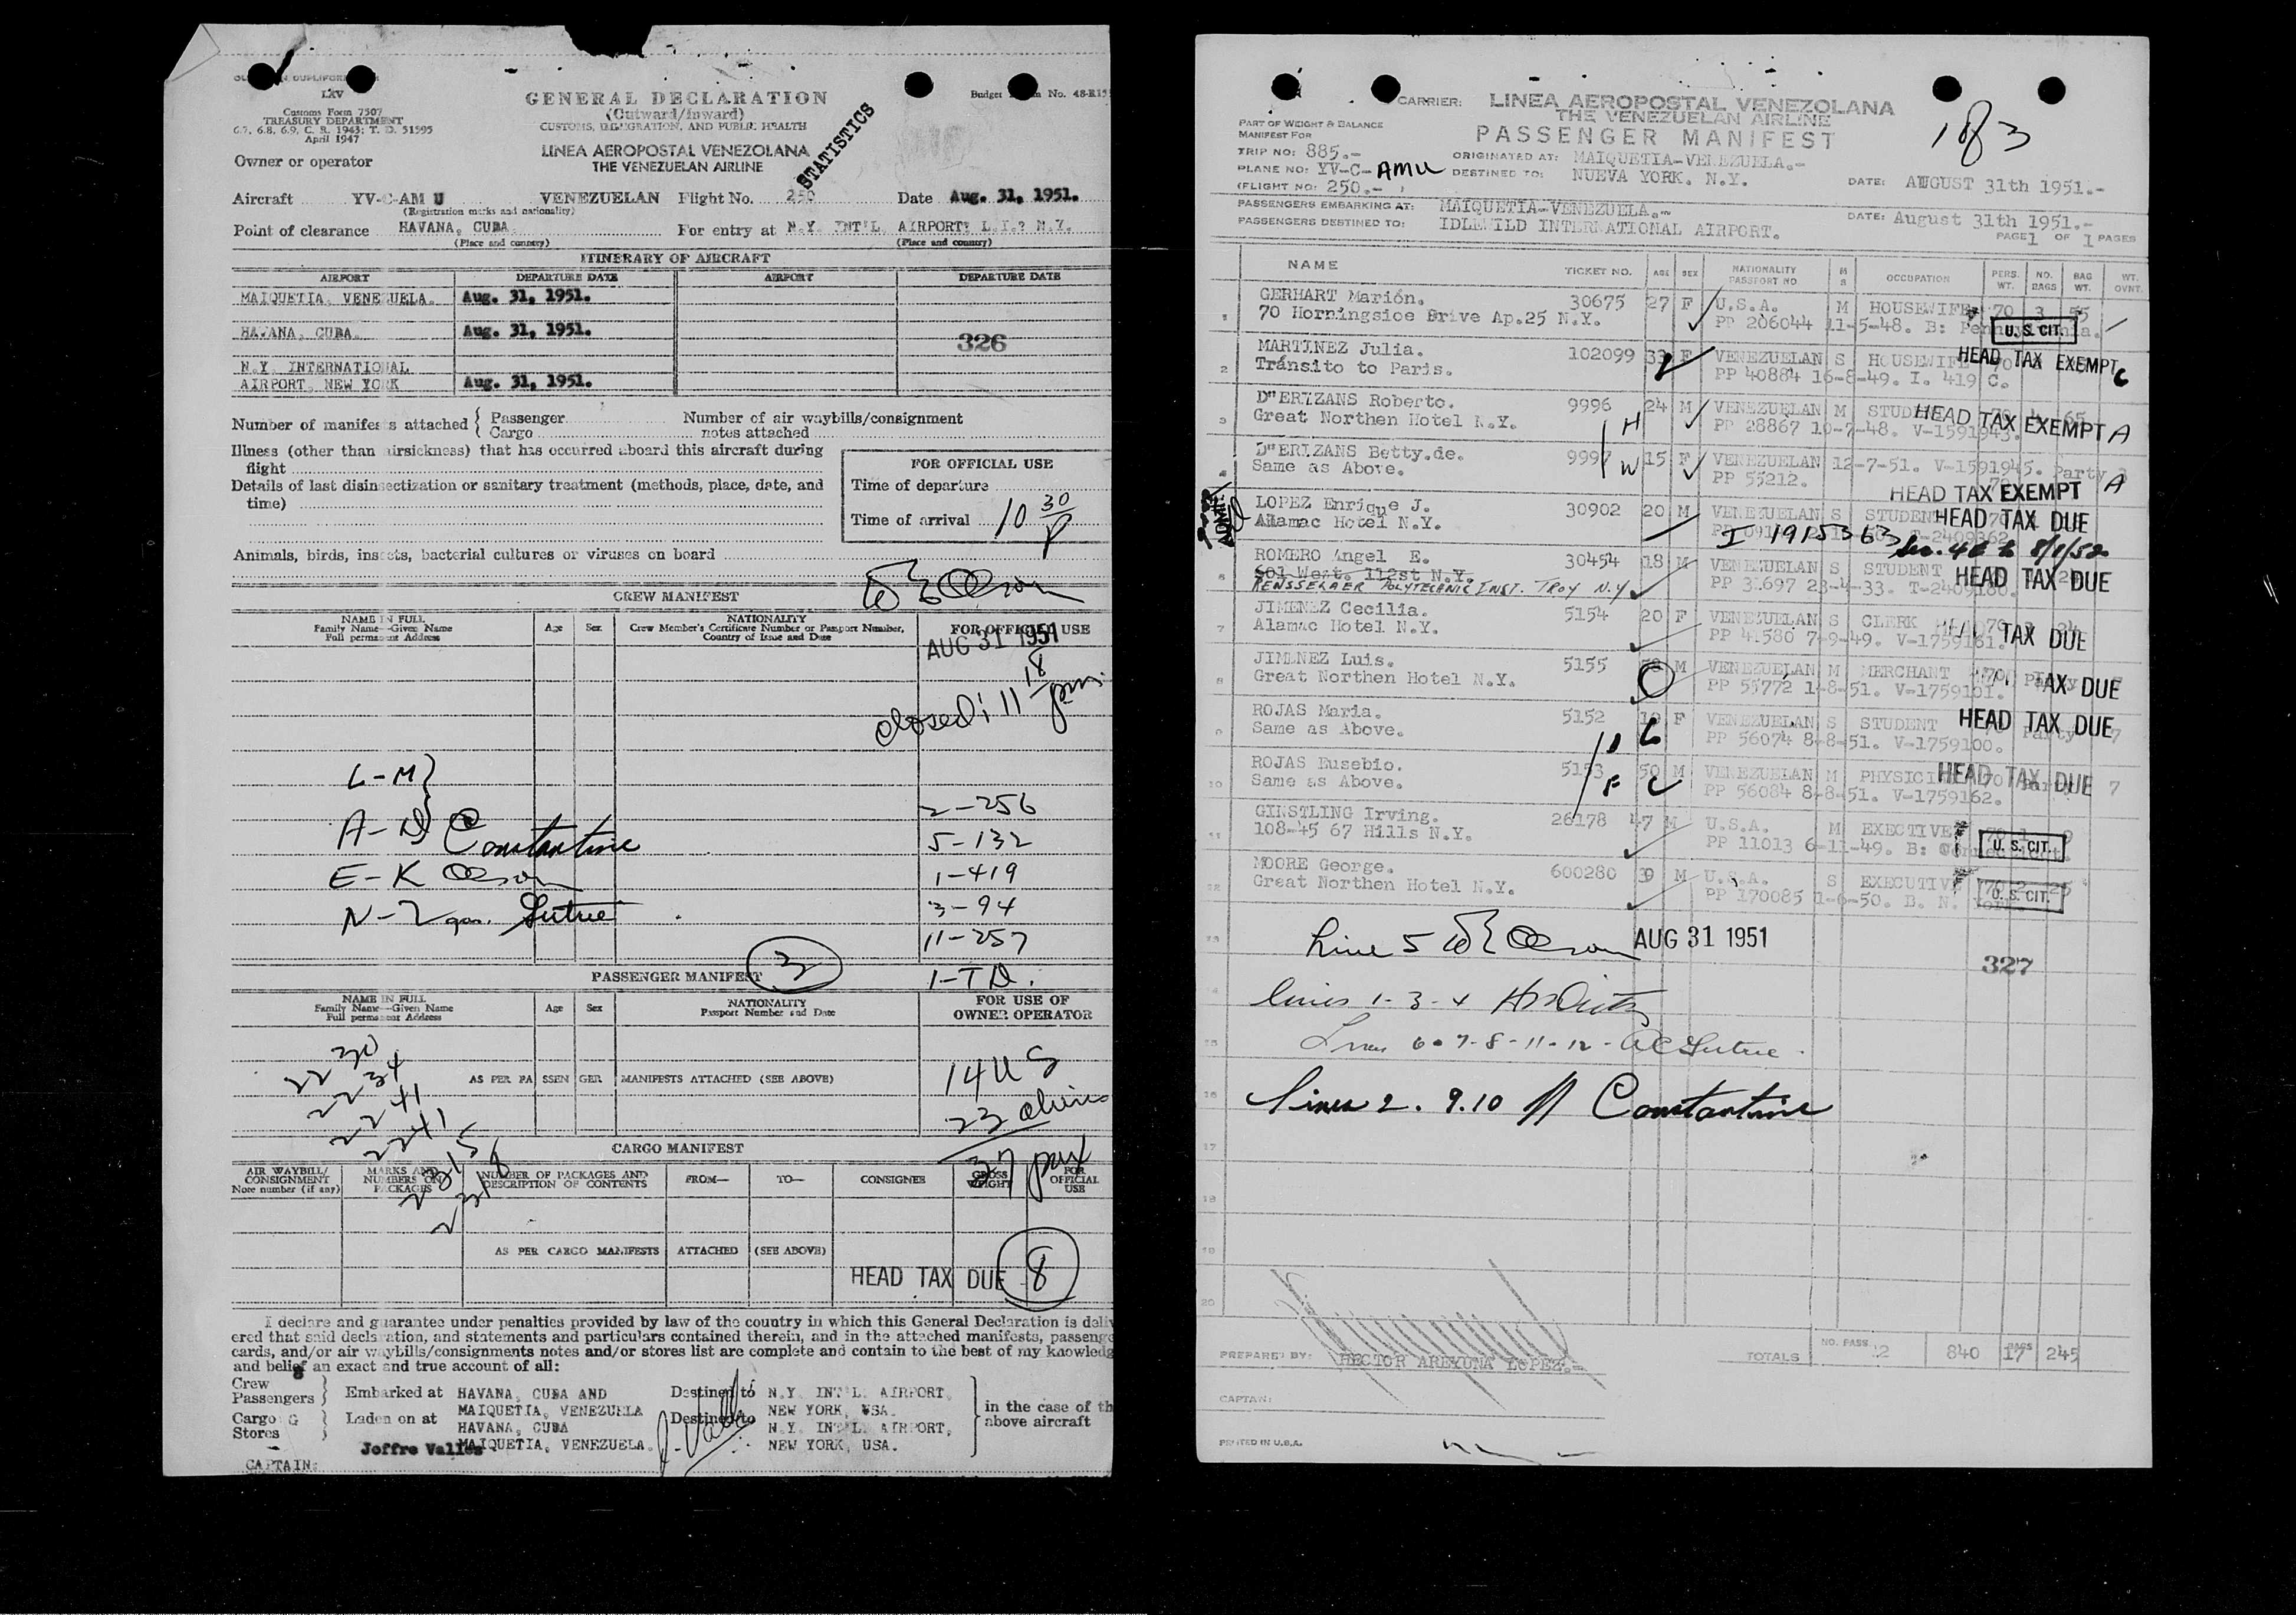 LAV
Customs Form 7507
TREASURY DEPARTMENT
6.7, 6.8, 6.9, C. R. 1943; T. D. 51595
April 1947
GENERAL DECLARATION
(Outward/Inward)
CUSTOMS, IMMIGRATION, AND PUBLIC HEALTH
Budget No. 48-R15
STATISTICS
Owner or operator
LINEA AEROPOSTAL VENEZOLANA
THE VENEZUELAN AIRLINE
Aircraft YV-C-AM U VENEZUELAN Flight No. 250 Date Aug. 31, 1951.
(Registration marks and nationality)
Point of clearance HAVANA, CUBA For entry at N.Y. INT'L. AIRPORT; L.I.? N.Y.
(Place and country) (Place and country)
ITINERARY OF AIRCRAFT
AIRPORT DEPARTURE DATE AIRPORT DEPARTURE DATE
MAIQUETIA, VENEZUELA. Aug. 31, 1951.
HAVANA, CUBA. Aug. 31, 1951.
326
N.Y. INTERNATIONAL
AIRPORT, NEW YORK Aug. 31, 1951.
Number of manifests attached { Passenger
Cargo
Number of air waybills/consignment
notes attached
Illness (other than airsickness) that has occurred aboard this aircraft during
flight
Details of last disinsectization or sanitary treatment (methods, place, date, and
time)
FOR OFFICIAL USE
Time of departure
Time of arrival 10 30 P
Animals, birds, insects, bacterial cultures or viruses on board
W E Olson
CREW MANIFEST
NAME IN FULL
Family Name—Given Name
Full permanent Address
Age Sex
NATIONALITY
Crew Member's Certificate Number or Passport Number,
Country of Issue and Date
FOR OFFICIAL USE
AUG 31 1951
closed: 11 18 pm.
L-M}
2-256
A-D} Constantine
5-132
E-K Olson
1-419
N-Z
3-94
11-257
PASSENGER MANIFEST 3
1-TD.
NAME IN FULL
Family Name—Given Name
Full permanent Address
Age Sex
NATIONALITY
Passport Number and Date
FOR USE OF
OWNER OPERATOR
22 30
22 34
22 41
22 41
23 15
23 18
AS PER PASSENGER MANIFESTS ATTACHED (SEE ABOVE)
14 US
23 aliens
37 pax
CARGO MANIFEST
AIR WAYBILL/
CONSIGNMENT
Note number (if any)
MARKS AND
NUMBERS ON
PACKAGES
NUMBER OF PACKAGES AND
DESCRIPTION OF CONTENTS
FROM— TO— CONSIGNEE
GROSS
WEIGHT
FOR
OFFICIAL
USE
AS PER CARGO MANIFESTS ATTACHED (SEE ABOVE)
HEAD TAX DUE 8
I declare and guarantee under penalties provided by law of the country in which this General Declaration is deliv
ered that said declaration, and statements and particulars contained therein, and in the attached manifests, passenge
cards, and/or air waybills/consignments notes and/or stores list are complete and contain to the best of my knowledg
and belief an exact and true account of all:
Crew
Passengers } Embarked at HAVANA, CUBA AND
MAIQUETIA, VENEZUELA
Destined to N.Y. INT'L. AIRPORT,
NEW YORK, USA.
Cargo G
Stores } Laden on at HAVANA, CUBA
MAIQUETIA, VENEZUELA.
Destined to N.Y. INT'L. AIRPORT,
NEW YORK, USA.
} in the case of th
above aircraft
Joffre Valles
CAPTAIN:
CARRIER: LINEA AEROPOSTAL VENEZOLANA
THE VENEZUELAN AIRLINE
PASSENGER MANIFEST
1 of 3
PART OF WEIGHT & BALANCE
MANIFEST FOR
TRIP NO: 885.-
PLANE NO: YV-C-AMU
(FLIGHT NO: 250.- )
ORIGINATED AT: MAIQUETIA-VENEZUELA.-
DESTINED TO: NUEVA YORK. N.Y.
DATE: AUGUST 31th 1951.-
PASSENGERS EMBARKING AT: MAIQUETIA-VENEZUELA.-
PASSENGERS DESTINED TO: IDLEWILD INTERNATIONAL AIRPORT.
DATE: August 31th 1951.-
PAGE 1 OF 1 PAGES
NAME TICKET NO. AGE SEX NATIONALITY PASSPORT NO M S OCCUPATION PERS. WT. NO. BAGS BAG WT. WT. OVNT.
1 GERHART Marión. 30675 27 F U.S.A. M HOUSEWIFE 70 3 55
70 Horningsice Drive Ap.25 N.Y. PP 206044 11-5-48. B: U.S. CIT.
2 MARTINEZ Julia. 102099 33 F VENEZUELAN S HOUSEWIFE HEAD TAX EXEMPT C
Tránsito to Paris. PP 40884 16-8-49. I. 419 C.
3 D"ERIZANS Roberto. 9996 24 M VENEZUELAN M HEAD TAX EXEMPT A
Great Northen Hotel N.Y. H PP 28867 10-7-48. V-1591943.
4 D"ERIZANS Betty.de. 9997 W 15 F VENEZUELAN 12-7-51. V-1591945. Party 3
Same as Above. PP 55212. HEAD TAX EXEMPT A
5 LOPEZ Enrique J. 30902 20 M VENEZUELAN S STUDENT HEAD TAX DUE
Alamac Hotel N.Y. I 1915363
ROMERO Angel E. 30454 18 M VENEZUELAN S STUDENT HEAD TAX DUE
6 601 West. 112st N.Y. PP 31697 23-4-33. T-2409180.
RENSSELAER POLYTECHNIC INST. TROY N.Y
7 JIMENEZ Cecilia. 5154 20 F VENEZUELAN S CLERK TAX DUE
Alamac Hotel N.Y. PP 41580 7-9-49. V-1759161.
8 JIMENEZ Luis. 5155 M VENEZUELAN M MERCHANT 70 TAX DUE
Great Northen Hotel N.Y. PP 55772 1-8-51. V-1759101.
9 ROJAS Maria. 5152 F VENEZUELAN S STUDENT HEAD TAX DUE
Same as Above. PP 56074 8-8-51. V-1759100. Party 7
10 ROJAS Eusebio. 5153 50 M VENEZUELAN M HEAD TAX DUE 7
Same as Above. F PP 56084 8-8-51. V-1759162.
11 GINSTLING Irving. 26178 47 M U.S.A. M EXECTIVE
108-45 67 Hills N.Y. PP 11013 6-11-49. B: U. S. CIT.
12 MOORE George. 600280 39 M U.S.A. S EXECUTIVE
Great Northen Hotel N.Y. PP 170085 1-6-50. B. N. U. S. CIT.
Line 5 W E Olson AUG 31 1951
327
lines 1-3-4
Lines 6-7-8-11-12-
lines 2. 9.10 Constantine
17
18
19
20
PREPARED BY: HECTOR AREYUNA LOPEZ.-
TOTALS NO. PASS. 12 840 BAGS 17 245
CAPTAIN:
PRINTED IN U.S.A.